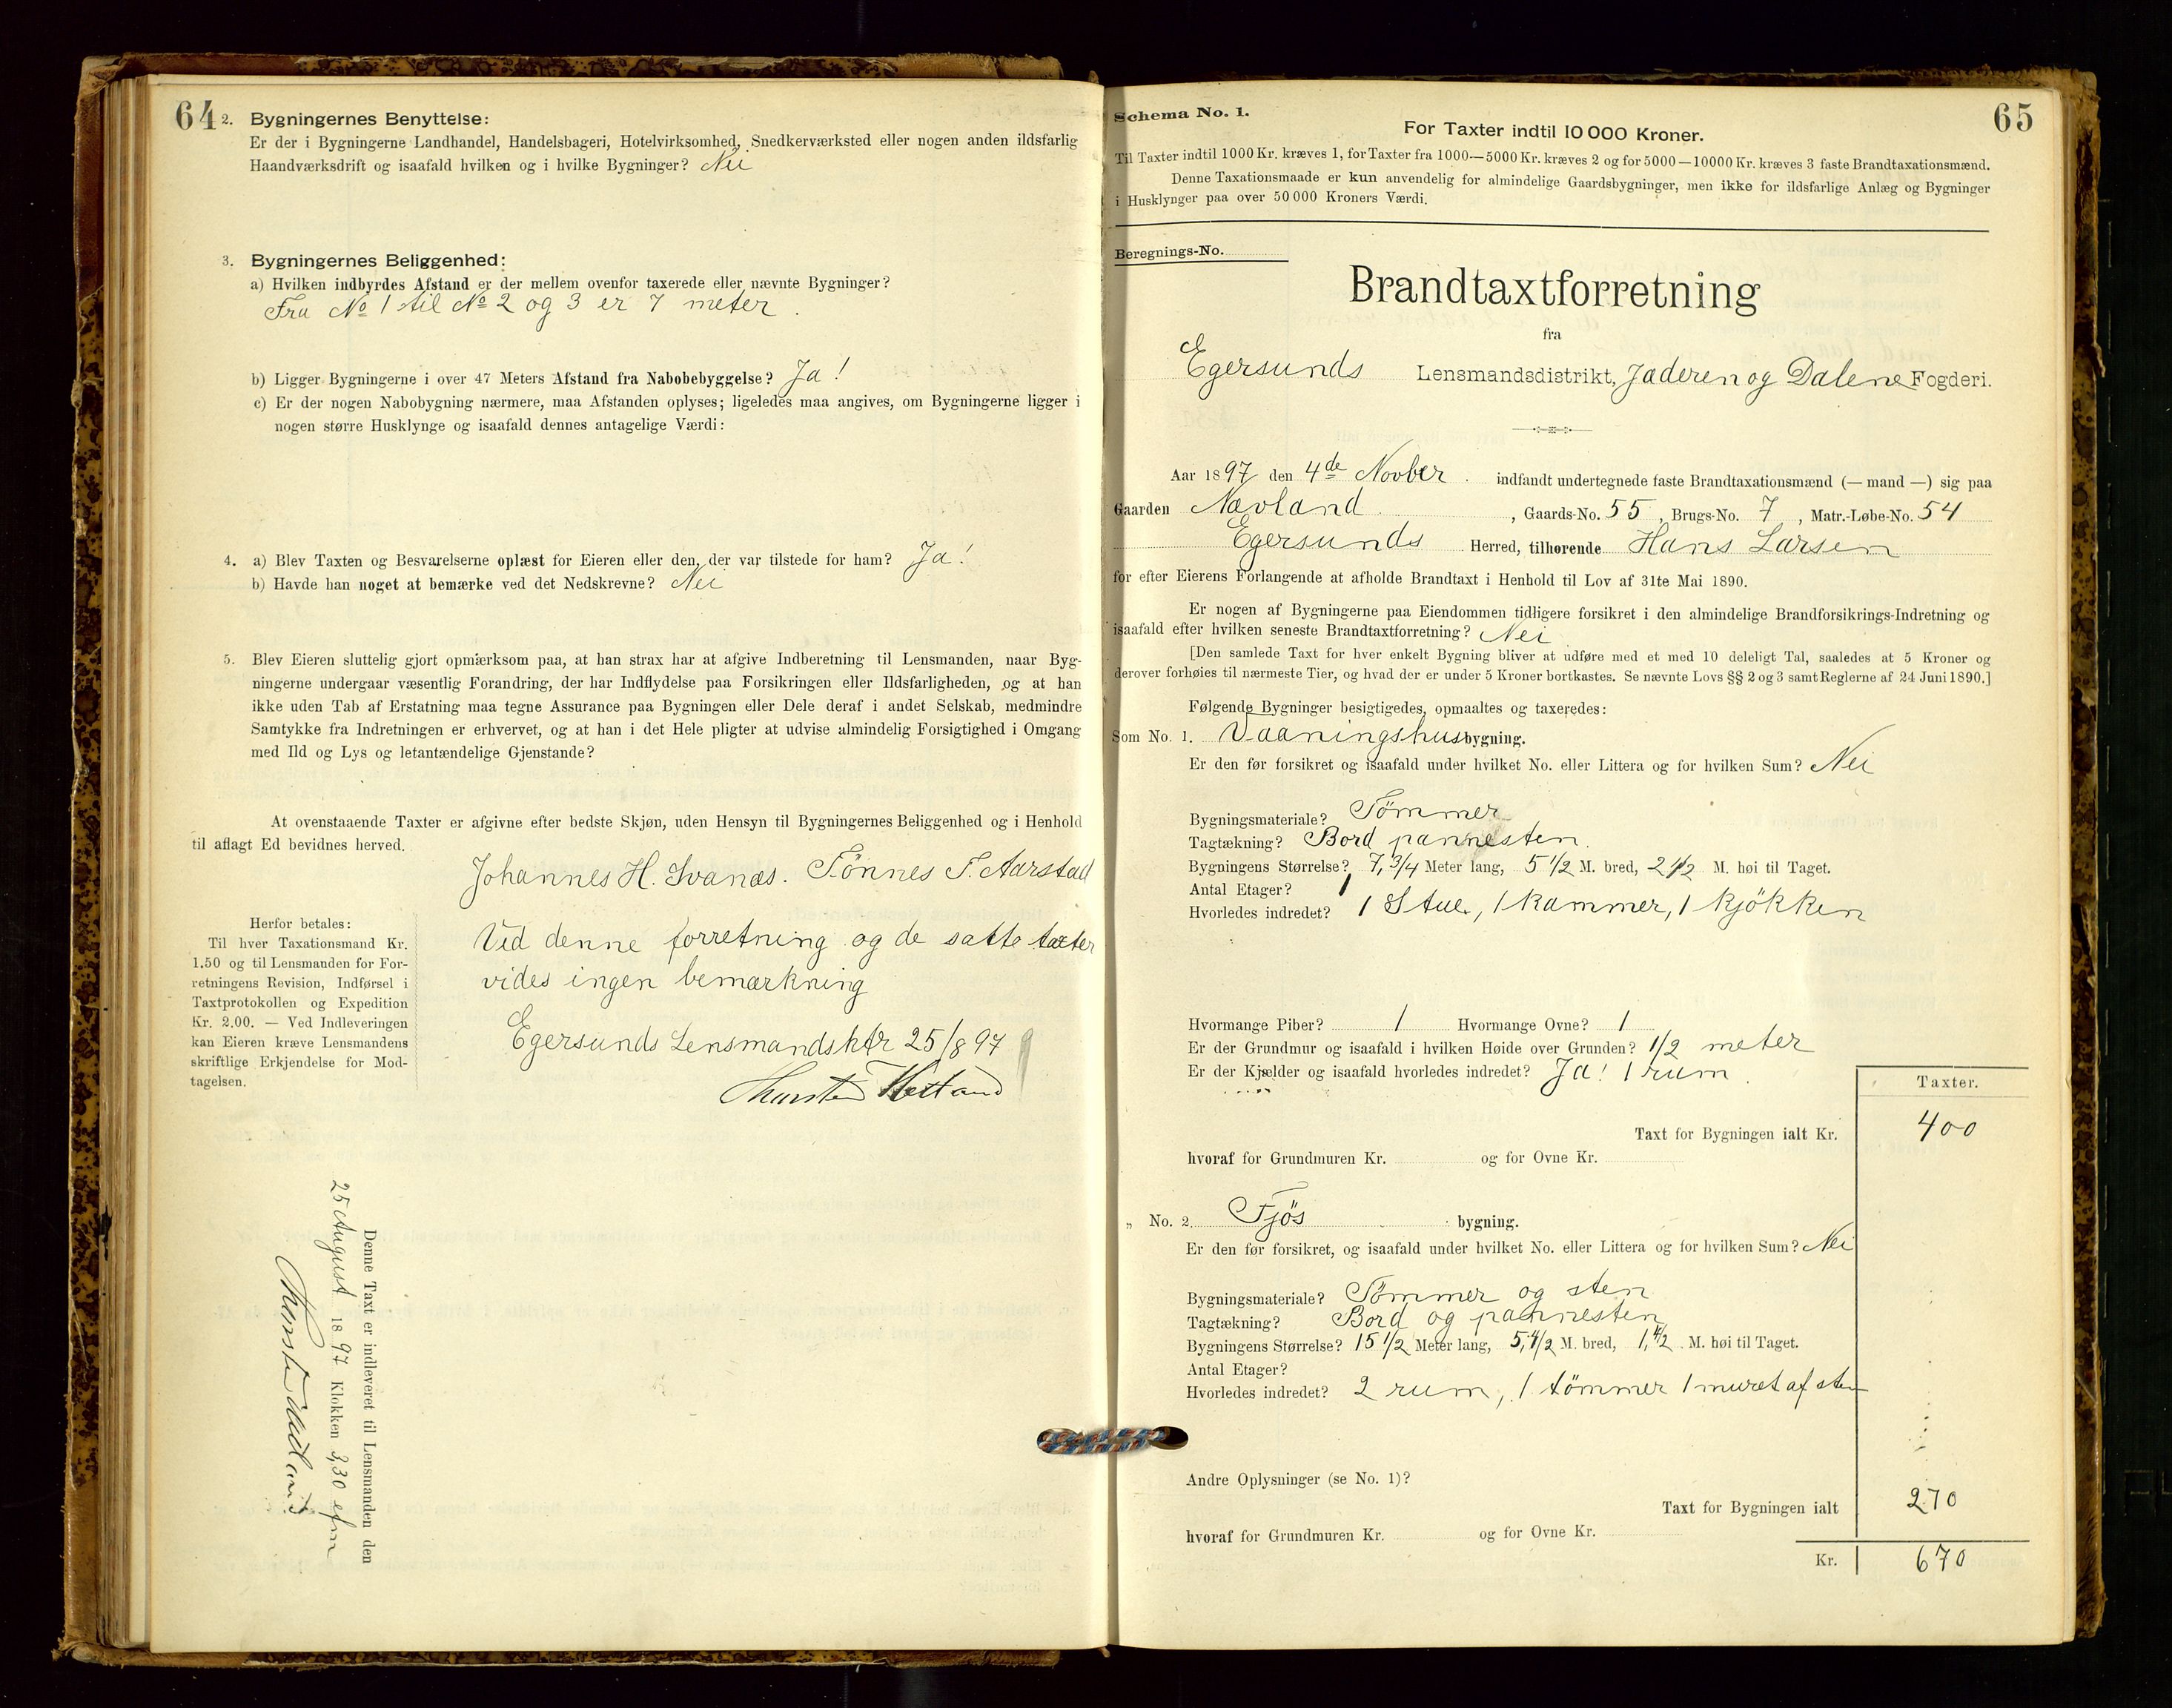 64
2. Bygningernes Benyttelse:
Er der i Bygningerne Landhandel, Handelsbageri, Hotelvirksomhed, Snedkerværksted eller nogen anden ildsfarlig
Haandværksdrift og isaafald hvilken og i hvilke Bygninger? Nei
3. Bygningernes Beliggenhed:
a) Hvilken indbyrdes Afstand er der mellem ovenfor taxerede eller nævnte Bygninger?
Fra No 1 til No 2 og 3 er 7 meter.
b) Ligger Bygningerne i over 47 Meters Afstand fra Nabobebyggelse? Ja!
c) Er der nogen Nabobygning nærmere, maa Afstanden oplyses; ligeledes maa angives, om Bygningerne ligger i
nogen større Husklynge og isaafald dennes antagelige Værdi:
4. a) Blev Taxten og Besvarelserne oplæst for Eieren eller den, der var tilstede for ham? Ja!
b) Havde han noget at bemærke ved det Nedskrevne? Nei
5. Blev Eieren sluttelig gjort opmærksom paa, at han strax har at afgive Indberetning til Lensmanden, naar Byg-
ningerne undergaar væsentlig Forandring, der har Indflydelse paa Forsikringen eller Ildsfarligheden, og at han
ikke uden Tab af Erstatning maa tegne Assurance paa Bygningen eller Dele deraf i andet Selskab, medmindre
Samtykke fra Indretningen er erhvervet, og at han i det Hele pligter at udvise almindelig Forsigtighed i Omgang
med Ild og Lys og letantændelige Gjenstande?
At ovenstaaende Taxter er afgivne efter bedste Skjøn, uden Hensyn til Bygningernes Beliggenhed og i Henhold
til aflagt Ed bevidnes herved.
Johannes H. Svanæs. Tönnes T. Aarstad
Herfor betales:
Til hver Taxationsmand Kr.
1.50 og til Lensmanden for For-
retningens Revision, Indførsel i
Taxtprotokollen og Expedition
Kr. 2.00. — Ved Indleveringen
kan Eieren kræve Lensmandens
skriftlige Erkjendelse for Mod-
tagelsen.
Ved denne forretning og de satte taxter
vides ingen bemærkning
Egersunds Lensmandsktr 25/8 97
Denne Taxt er indleveret til Lensmanden den
25 August 1897 Klokken 3,30 efm
65
Schema No. 1.
For Taxter indtil 10 000 Kroner.
Til Taxter indtil 1000 Kr. kræves 1, for Taxter fra 1000—5000 Kr. kræves 2 og for 5000—10000 Kr. kræves 3 faste Brandtaxationsmænd.
Denne Taxationsmaade er kun anvendelig for almindelige Gaardsbygninger, men ikke for ildsfarlige Anlæg og Bygninger
i Husklynger paa over 50 000 Kroners Værdi.
Beregnings-No.
Brandtaxtforretning
fra
Egersunds Lensmandsdistrikt, Jæderen og Dalene Fogderi.
Aar 1897 den 4de Novber. indfandt undertegnede faste Brandtaxationsmænd (— mand —) sig paa
Gaarden Nævland, Gaards-No. 55, Brugs-No. 7, Matr.-Løbe-No. 54
Egersunds Herred, tilhørende Hans Larsen
for efter Eierens Forlangende at afholde Brandtaxt i Henhold til Lov af 31te Mai 1890.
Er nogen af Bygningerne paa Eiendommen tidligere forsikret i den almindelige Brandforsikrings-Indretning og
isaafald efter hvilken seneste Brandtaxtforretning? Nei
[Den samlede Taxt for hver enkelt Bygning bliver at udføre med et med 10 deleligt Tal, saaledes at 5 Kroner og
derover forhøies til nærmeste Tier, og hvad der er under 5 Kroner bortkastes. Se nævnte Lovs §§ 2 og 3 samt Reglerne af 24 Juni 1890.]
Følgende Bygninger besigtigedes, opmaaltes og taxeredes:
Som No. 1. Vaaningshus bygning.
Er den før forsikret og isaafald under hvilket No. eller Littera og for hvilken Sum? Nei
Bygningsmateriale? Tömmer
Tagtækning? Bord pannesten.
Bygningens Størrelse? 7,3/4 Meter lang, 5 1/2 M. bred, 2 1/2 M. høi til Taget.
Antal Etager? 1
Hvorledes indredet? 1 Stue, 1 kammer, 1 kjökken
Hvormange Piber? 1 Hvormange Ovne? 1
Er der Grundmur og isaafald i hvilken Høide over Grunden? 1/2 meter
Er der Kjælder og isaafald hvorledes indredet? Ja! 1 rum
Taxter.
Taxt for Bygningen ialt Kr. 400
hvoraf for Grundmuren Kr. og for Ovne Kr.
„ No. 2. Fjös bygning.
Er den før forsikret, og isaafald under hvilket No. eller Littera og for hvilken Sum? Nei
Bygningsmateriale? Tömmer og sten
Tagtækning? Bord og pannesten
Bygningens Størrelse? 15 1/2 Meter lang, 5,1/2 M. bred, 1,1/2 M. høi til Taget.
Antal Etager?
Hvorledes indredet? 2 rum, 1 tömmer 1 muret af sten
Andre Oplysninger (se No. 1)?
Taxt for Bygningen ialt 270
hvoraf for Grundmuren Kr. og for Ovne Kr.
Kr. 670